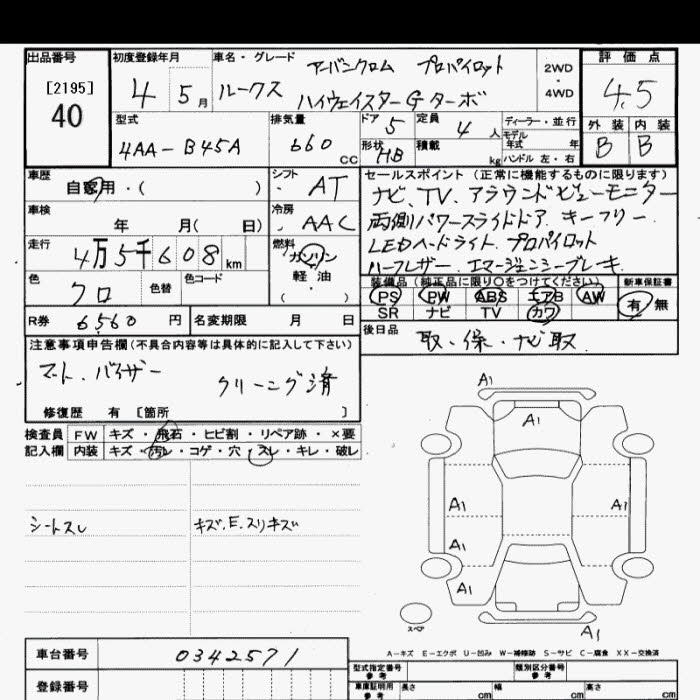 出品番号 初度登録年月 車名・グレード アーバンクロム プロパイロット 2WD 評価点
[2195] 4 5月 ルークス ハイウェイスターGターボ ・ 4WD 4.5
40
型式 排気量 ドア 5 定員 4人 ディーラー・並行 外装 内装
4AA-B45A 660cc 形状 HB 積載 kg モデル年式 年 B B
ハンドル 左・右
車歴 自家用・( ) シフト ・ AT セールスポイント(正常に機能するものに限ります)
車検 年 月(日) 冷房 ・ AAC ナビ、TV、アラウンドビューモニター
両側パワースライドドア、キーフリー
走行 4万5千608km 燃料 ガソリン・軽油・( ) LEDヘッドライト、プロパイロット
色 クロ 色替 色コード ハーフレザー エマージェンシーブレーキ
装備品(純正品に限り○をつけてください) 新車保証書
PS PW ABS エアB AW 有・無
SR ナビ TV カワ
R券 6560円 名変期限 月 日 後日品 取・保・ナビ取
注意事項申告欄(不具合内容等は具体的に記入して下さい)
マット、バイザー クリーニング済
修復歴 有 [箇所 ]
検査員 FW キズ・飛石・ヒビ割・リペア跡・×要
記入欄 内装 キズ・汚レ・コゲ・穴・スレ・キレ・破レ
シートスレ キズ、E、スリキズ
A1
A1
A1 A1
A1
A1
スペア A1
A-キズ E-エクボ U-凹み W-補修跡 S-サビ C-腐食 XX-交換済
車台番号 0342571 型式指定番号 参考 類別区分番号 参考
登録番号 車庫証明用 参考 長さ cm 幅 cm 高さ cm